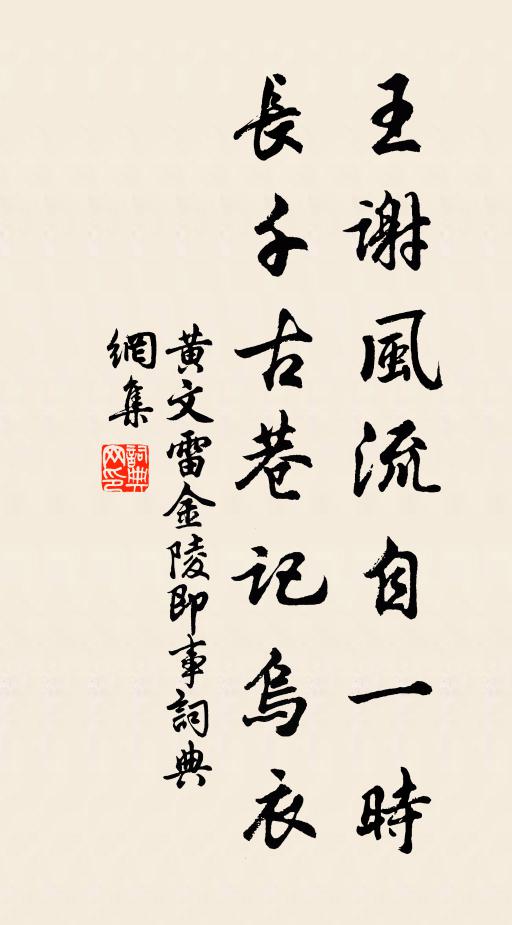 王謝風流自一時
長千古巷記烏衣
黃文雷金陵即事詞典
網集
詞典網印